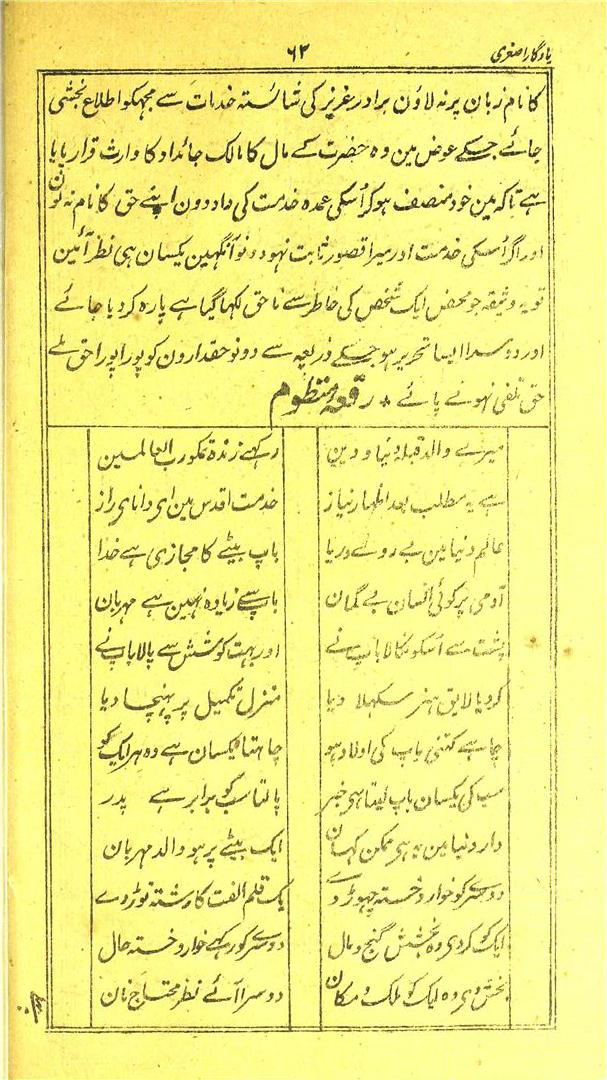 یادگار اصغری
۶۲
کا نام زبان پر نہ لاؤن برادر عزیز کی شائستہ خدمات سے مجہکو اطلاع بخشی
جائے جسکے عوض مین وہ حضرت کے مال کا مالک جائداد کا وارث قرار پایا
ہے تاکہ مین خود منصف ہوکر اُسکی عمدہ خدمت کی داد دون اپنے حق کا نام نہ لون
اور اگر اُسکی خدمت اور میرا قصور ثابت نہو دونو آنکہین یکسان ہی نظر آئین
تو یہ وثیقہ جو محض ایک شخص کی خاطر سے ناحق لکہا گیا ہے پارہ کر دیا جائے
اور دوسرا ایسا تحریر ہو جسکے ذریعہ سے دونو حقدارون کو پورا پورا حق ملے
حق تلفی نہونے پائے * رقعہ منظوم
میرے والد قبلہ دنیا و دین رکہے زندہ تمکو رب العالمین
ہے یہ مطلب بعد اظہار نیاز خدمت اقدس مین ای دانای راز
عالم دنیا مین بے روے و ریا باپ بیٹے کا مجازی ہے خدا
آدمی پر کوئی انسان بے گمان باپ سے زیادہ نہین ہے مہربان
پشت سے اُسکو نکالا باپ نے اور بہت کوشش سے پالا باپ نے
کر دیا لایق ہنر سکہلا دیا منزل تکمیل پر پہنچا دیا
چاہے کتنی باپ کی اولاد ہو چاہتا یکسان ہے وہ ہر ایک کو
سب کی یکسان باپ لیتا ہی خبر پالتا سب کو برابر ہے پدر
دار دنیا مین یہ ہی ممکن کہان ایک بیٹے پر ہو والد مہربان
دوسرے کو خوار و خستہ چہوڑ دے یک قلم الفت کا رشتہ توڑ دے
ایک کو کر دی وہ بخشش گنج و مال دوسرے کو رکہے خوار و خستہ حال
بخش دی وہ ایک کو ملک و مکان دوسرا آئے نظر محتاج نان